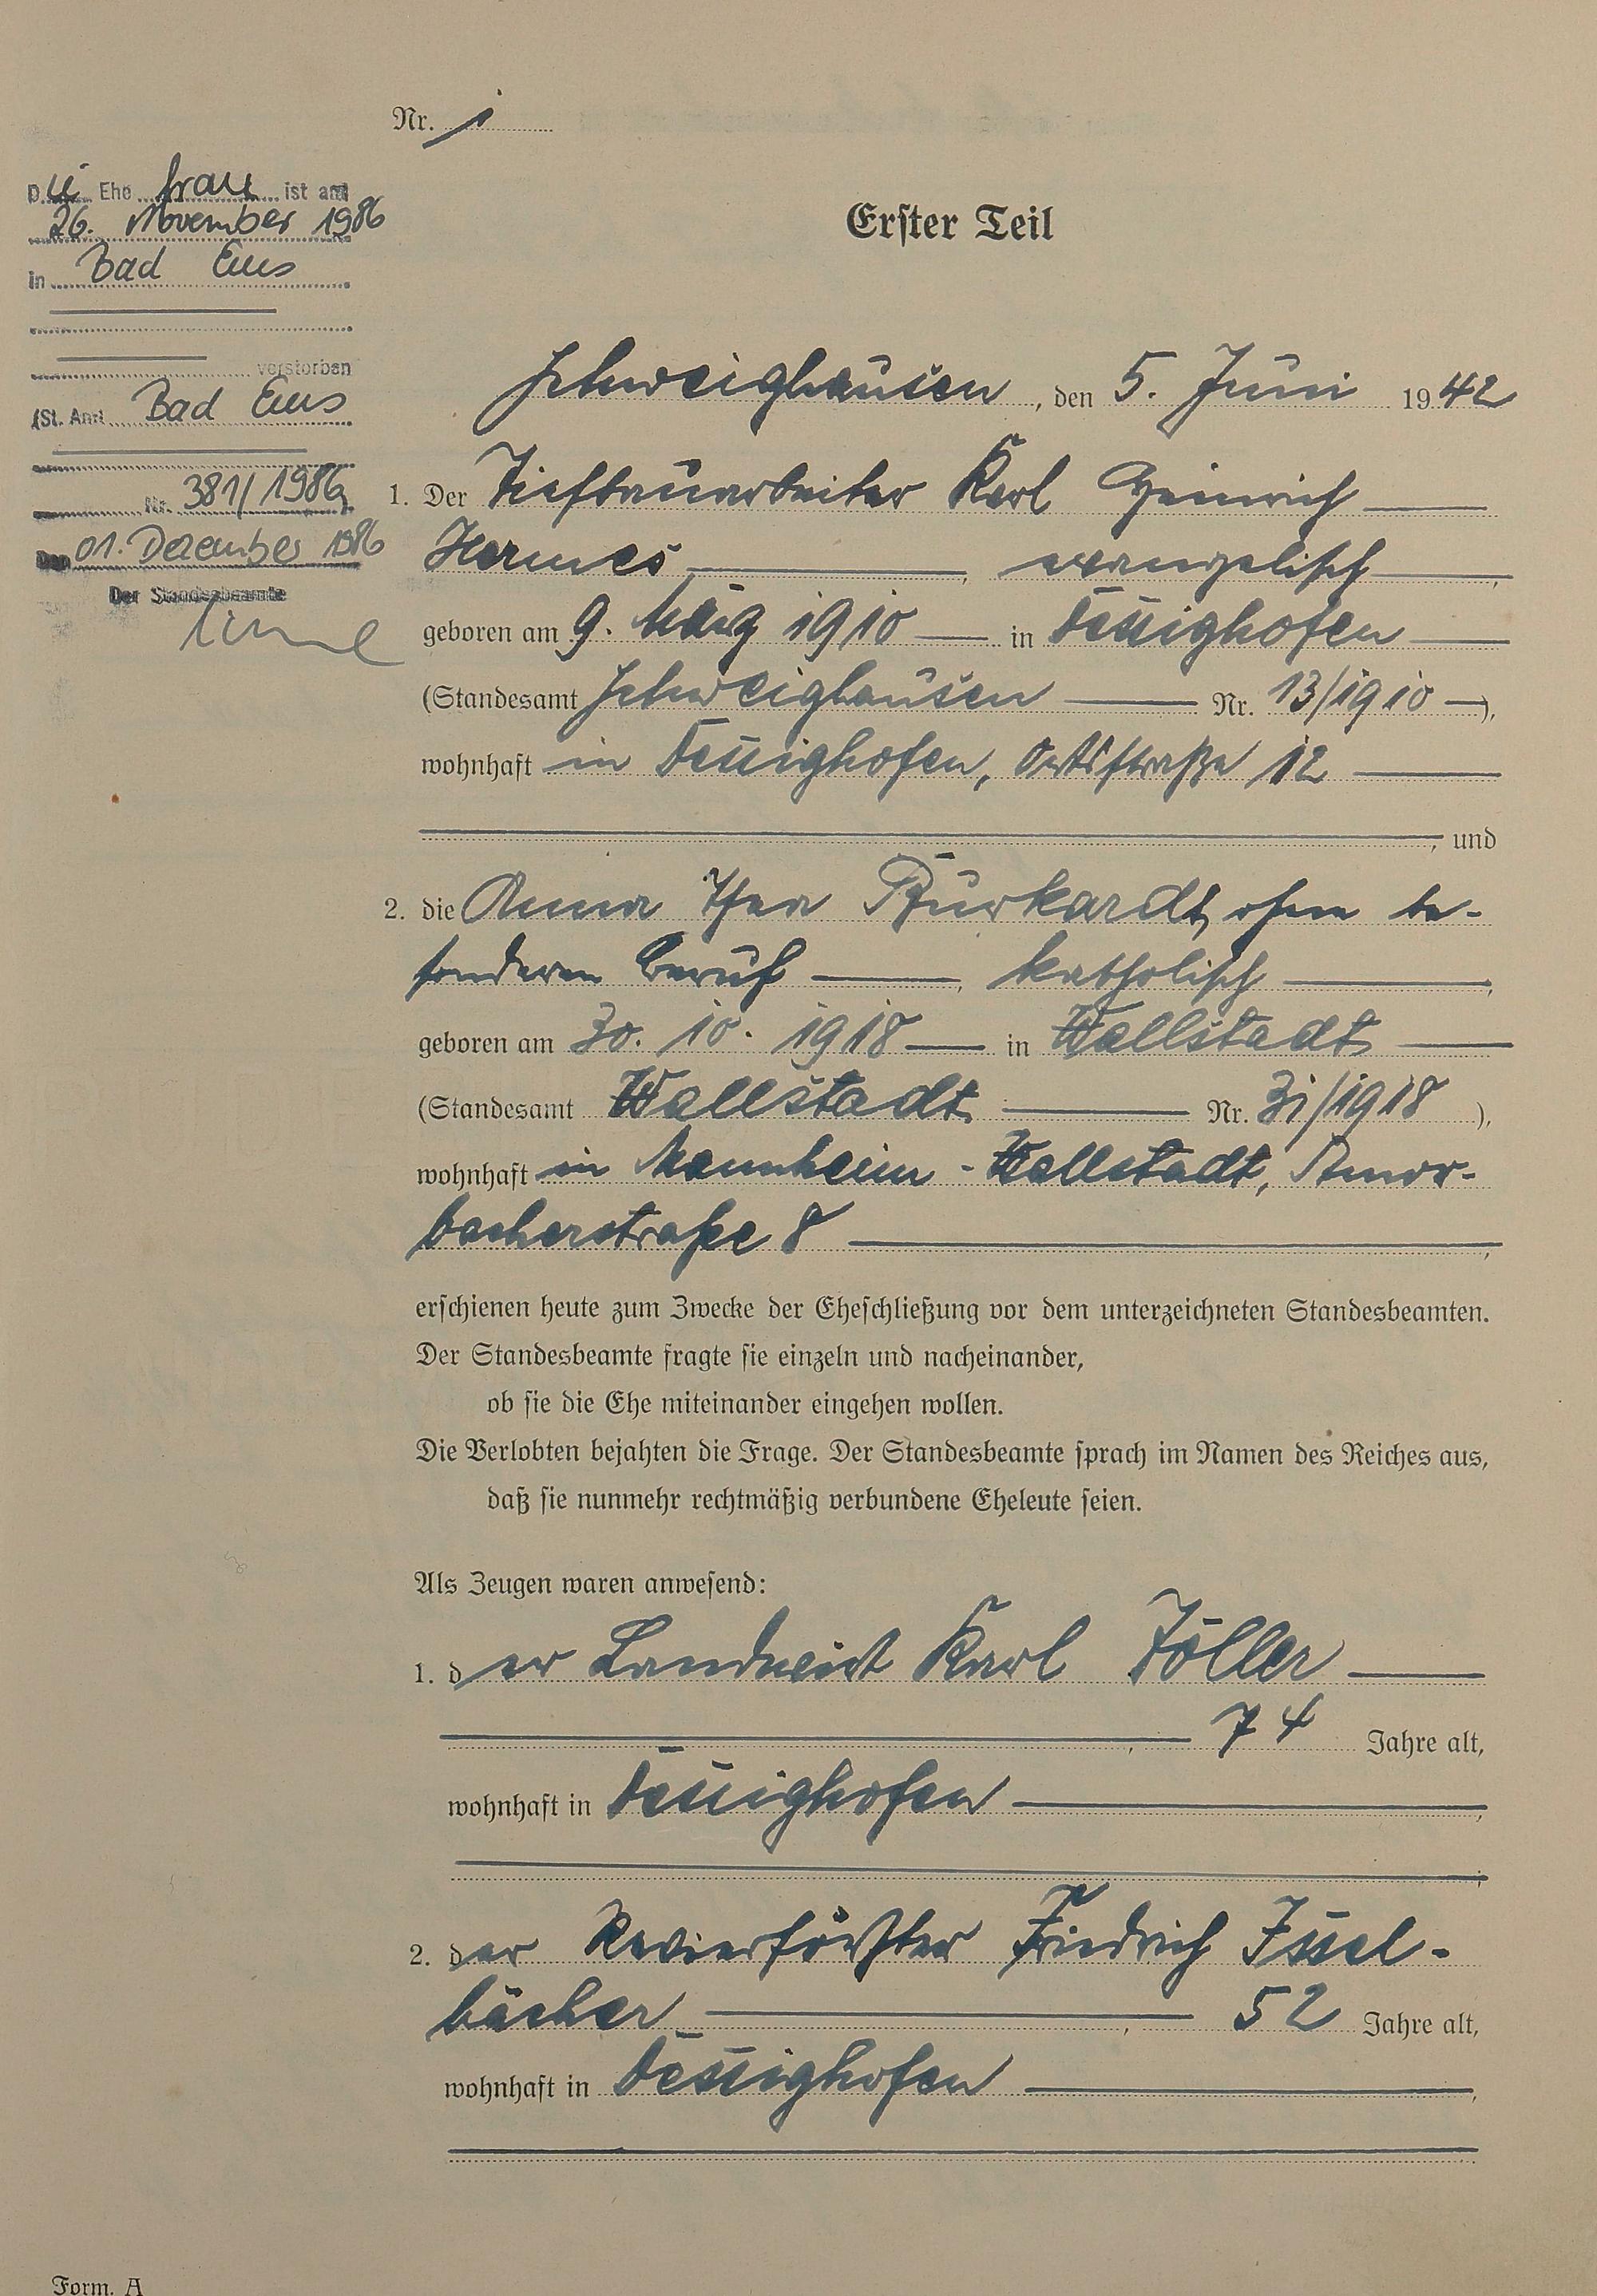 Nr. 1
Die Ehe frau ist am
26. November 1986
in Bad Ems
verstorben
(St. Amt Bad Ems
Nr. 381/1986)
Den 01. Dezember 1986
Der Standesbeamte
Erster Teil
Schweighausen, den 5. Juni 1942
1. Der Tiefbauarbeiter Karl Heinrich
Hermes, evangelisch,
geboren am 9. März 1910 in Dessighofen
(Standesamt Schweighausen Nr. 13/1910),
wohnhaft in Dessighofen, Ortsstraße 12
, und
2. die Anna Thea Burkardt, ohne be-
sonderen Beruf, katholisch,
geboren am 30. 10. 1918 in Wallstadt
(Standesamt Wallstadt Nr. 31/1918),
wohnhaft in Mannheim-Wallstadt, Amor-
bacherstraße 8,
erschienen heute zum Zwecke der Eheschließung vor dem unterzeichneten Standesbeamten.
Der Standesbeamte fragte sie einzeln und nacheinander,
ob sie die Ehe miteinander eingehen wollen.
Die Verlobten bejahten die Frage. Der Standesbeamte sprach im Namen des Reiches aus,
daß sie nunmehr rechtmäßig verbundene Eheleute seien.
Als Zeugen waren anwesend:
1. der Landwirt Karl Zöller
, 74 Jahre alt,
wohnhaft in Dessighofen,
2. der Revierförster Friedrich Issel-
bächer, 52 Jahre alt,
wohnhaft in Dessighofen,
Form. A